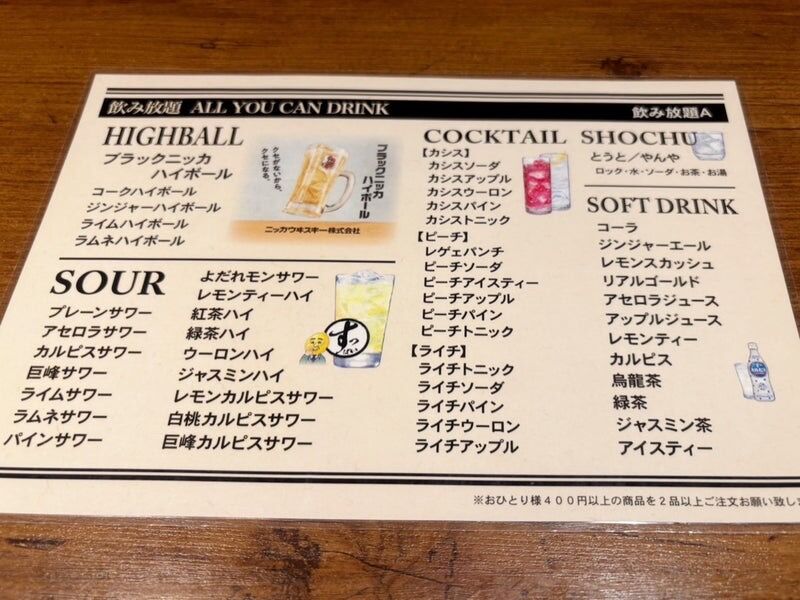 飲み放題 ALL YOU CAN DRINK
飲み放題A
HIGHBALL
ブラックニッカ
ハイボール
コークハイボール
ジンジャーハイボール
ライムハイボール
ラムネハイボール
クセがないから、
クセになる。
ブラックニッカ
ハイボール
ニッカウヰスキー株式会社
SOUR
プレーンサワー
アセロラサワー
カルピスサワー
巨峰サワー
ライムサワー
ラムネサワー
パインサワー
よだれモンサワー
レモンティーハイ
紅茶ハイ
緑茶ハイ
ウーロンハイ
ジャスミンハイ
レモンカルピスサワー
白桃カルピスサワー
巨峰カルピスサワー
すっぱい
COCKTAIL
【カシス】
カシスソーダ
カシスアップル
カシスウーロン
カシスパイン
カシストニック
【ピーチ】
レゲェパンチ
ピーチソーダ
ピーチアイスティー
ピーチアップル
ピーチパイン
ピーチトニック
【ライチ】
ライチトニック
ライチソーダ
ライチパイン
ライチウーロン
ライチアップル
SHOCHU
とうと／やんや
ロック・水・ソーダ・お茶・お湯
SOFT DRINK
コーラ
ジンジャーエール
レモンスカッシュ
リアルゴールド
アセロラジュース
アップルジュース
レモンティー
カルピス
烏龍茶
緑茶
ジャスミン茶
アイスティー
※おひとり様４００円以上の商品を２品以上ご注文お願い致しま